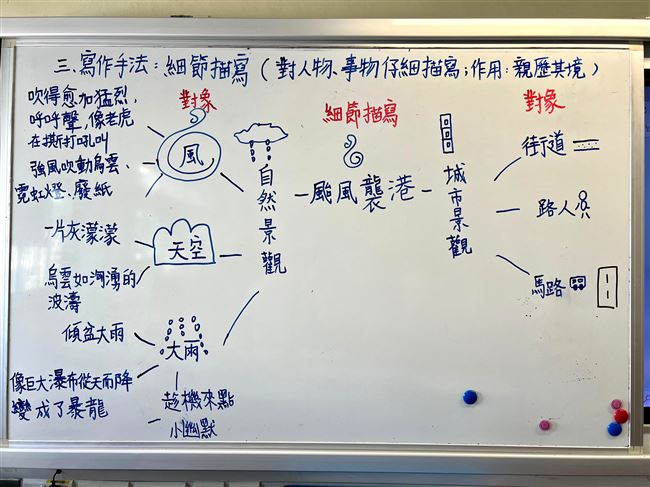 三、寫作手法：細節描寫（對人物、事物仔細描寫；作用：親歷其境）
對象
細節描寫
對象
吹得愈加猛烈，
呼呼聲，像老虎
在撕打吼叫
強風吹動烏雲、
霓虹燈、廢紙
風
一片灰濛濛
烏雲如洶湧的
波濤
天空
傾盆大雨
像巨大瀑布從天而降
變成了暴龍
大雨
趁機來點
小幽默
自然景觀
颱風襲港
城市景觀
街道
路人
馬路